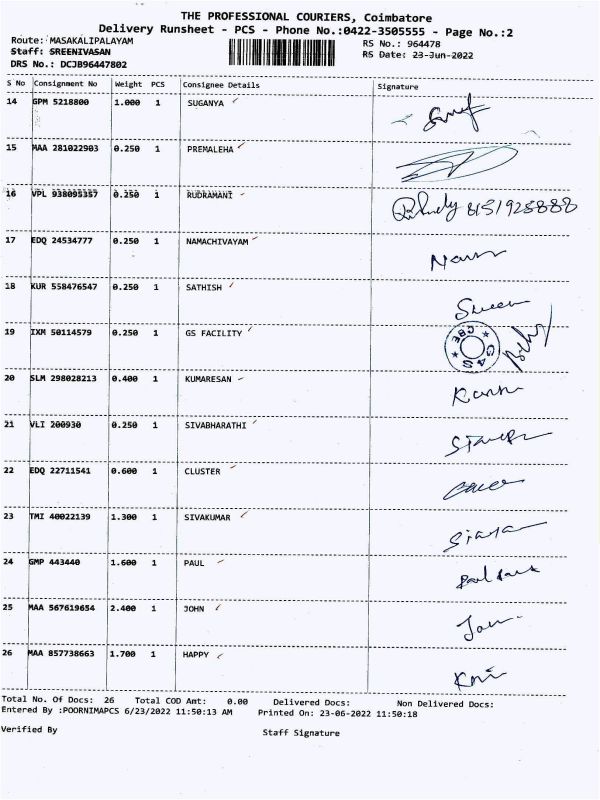 THE PROFESSIONAL COURIERS, Coimbatore
Delivery Runsheet - PCS - Phone No.:0422-3505555 - Page No.:2
Route: MASAKALIPALAYAM RS No.: 964478
Staff: SREENIVASAN RS Date: 23-Jun-2022
DRS No.: DCJB96447802
S No Consignment No Weight PCS Consignee Details Signature
14 GPM 5218800 1.000 1 SUGANYA
15 MAA 281022903 0.250 1 PREMALEHA
16 VPL 938095357 0.250 1 RUDRAMANI
17 EDQ 24534777 0.250 1 NAMACHIVAYAM
18 KUR 558476547 0.250 1 SATHISH
19 IXM 50114579 0.250 1 GS FACILITY GAS CBE
20 SLM 298028213 0.400 1 KUMARESAN
21 VLI 200930 0.250 1 SIVABHARATHI
22 EDQ 22711541 0.600 1 CLUSTER
23 TMI 40022139 1.300 1 SIVAKUMAR
24 GMP 443440 1.600 1 PAUL
25 MAA 567619654 2.400 1 JOHN
26 MAA 857738663 1.700 1 HAPPY
Total No. Of Docs: 26 Total COD Amt: 0.00 Delivered Docs: Non Delivered Docs:
Entered By :POORNIMAPCS 6/23/2022 11:50:13 AM Printed On: 23-06-2022 11:50:18
Verified By Staff Signature